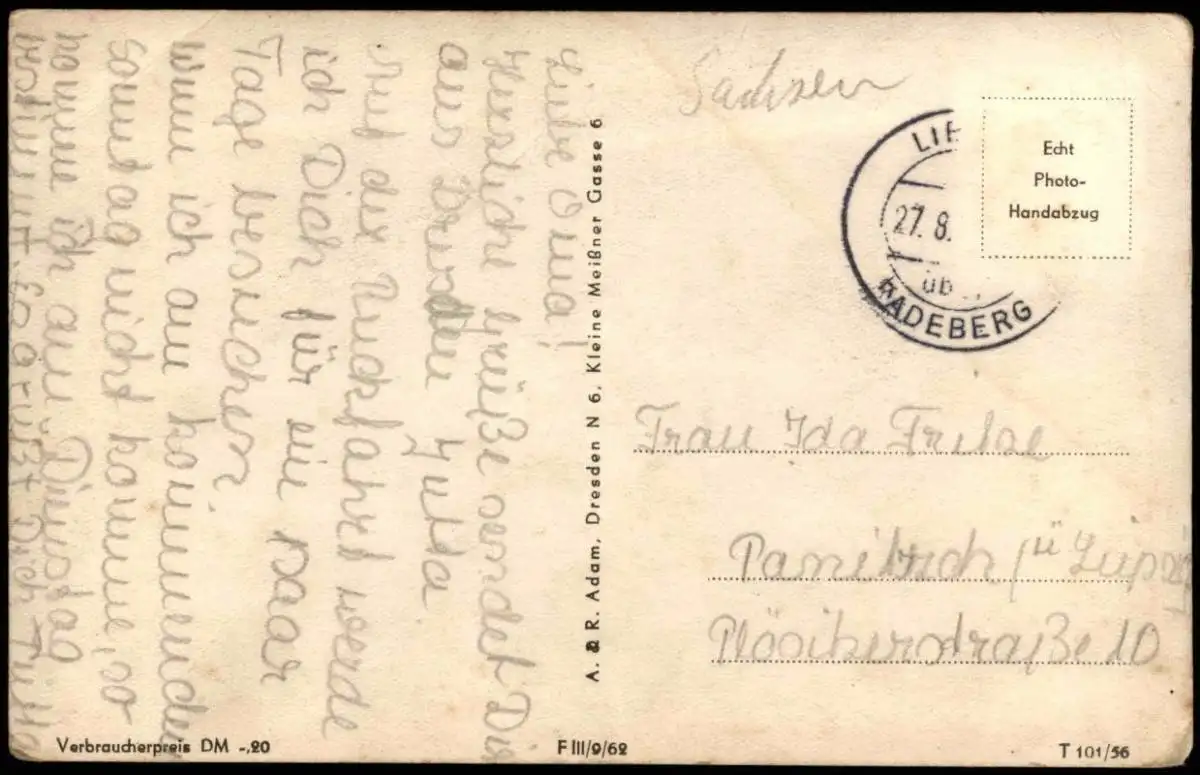 Liebe Oma!
Herzliche Grüße sendet Dir
aus Dresden Jutta
Auf der Rückfahrt werde
ich Dich für ein paar
Tage besuchen
wenn ich am kommenden
Sonntag nicht komme, so
komme ich am Dienstag
bestimmt. Es grüßt Dich Jutta
A. & R. Adam, Dresden N 6, Kleine Meißner Gasse 6
Sachsen
Echt
Photo-
Handabzug
LIE
27.8.
üb
RADEBERG
Frau Ida
Leipzig
straße 10
Verbraucherpreis DM -,20
F III/9/62
T 101/56